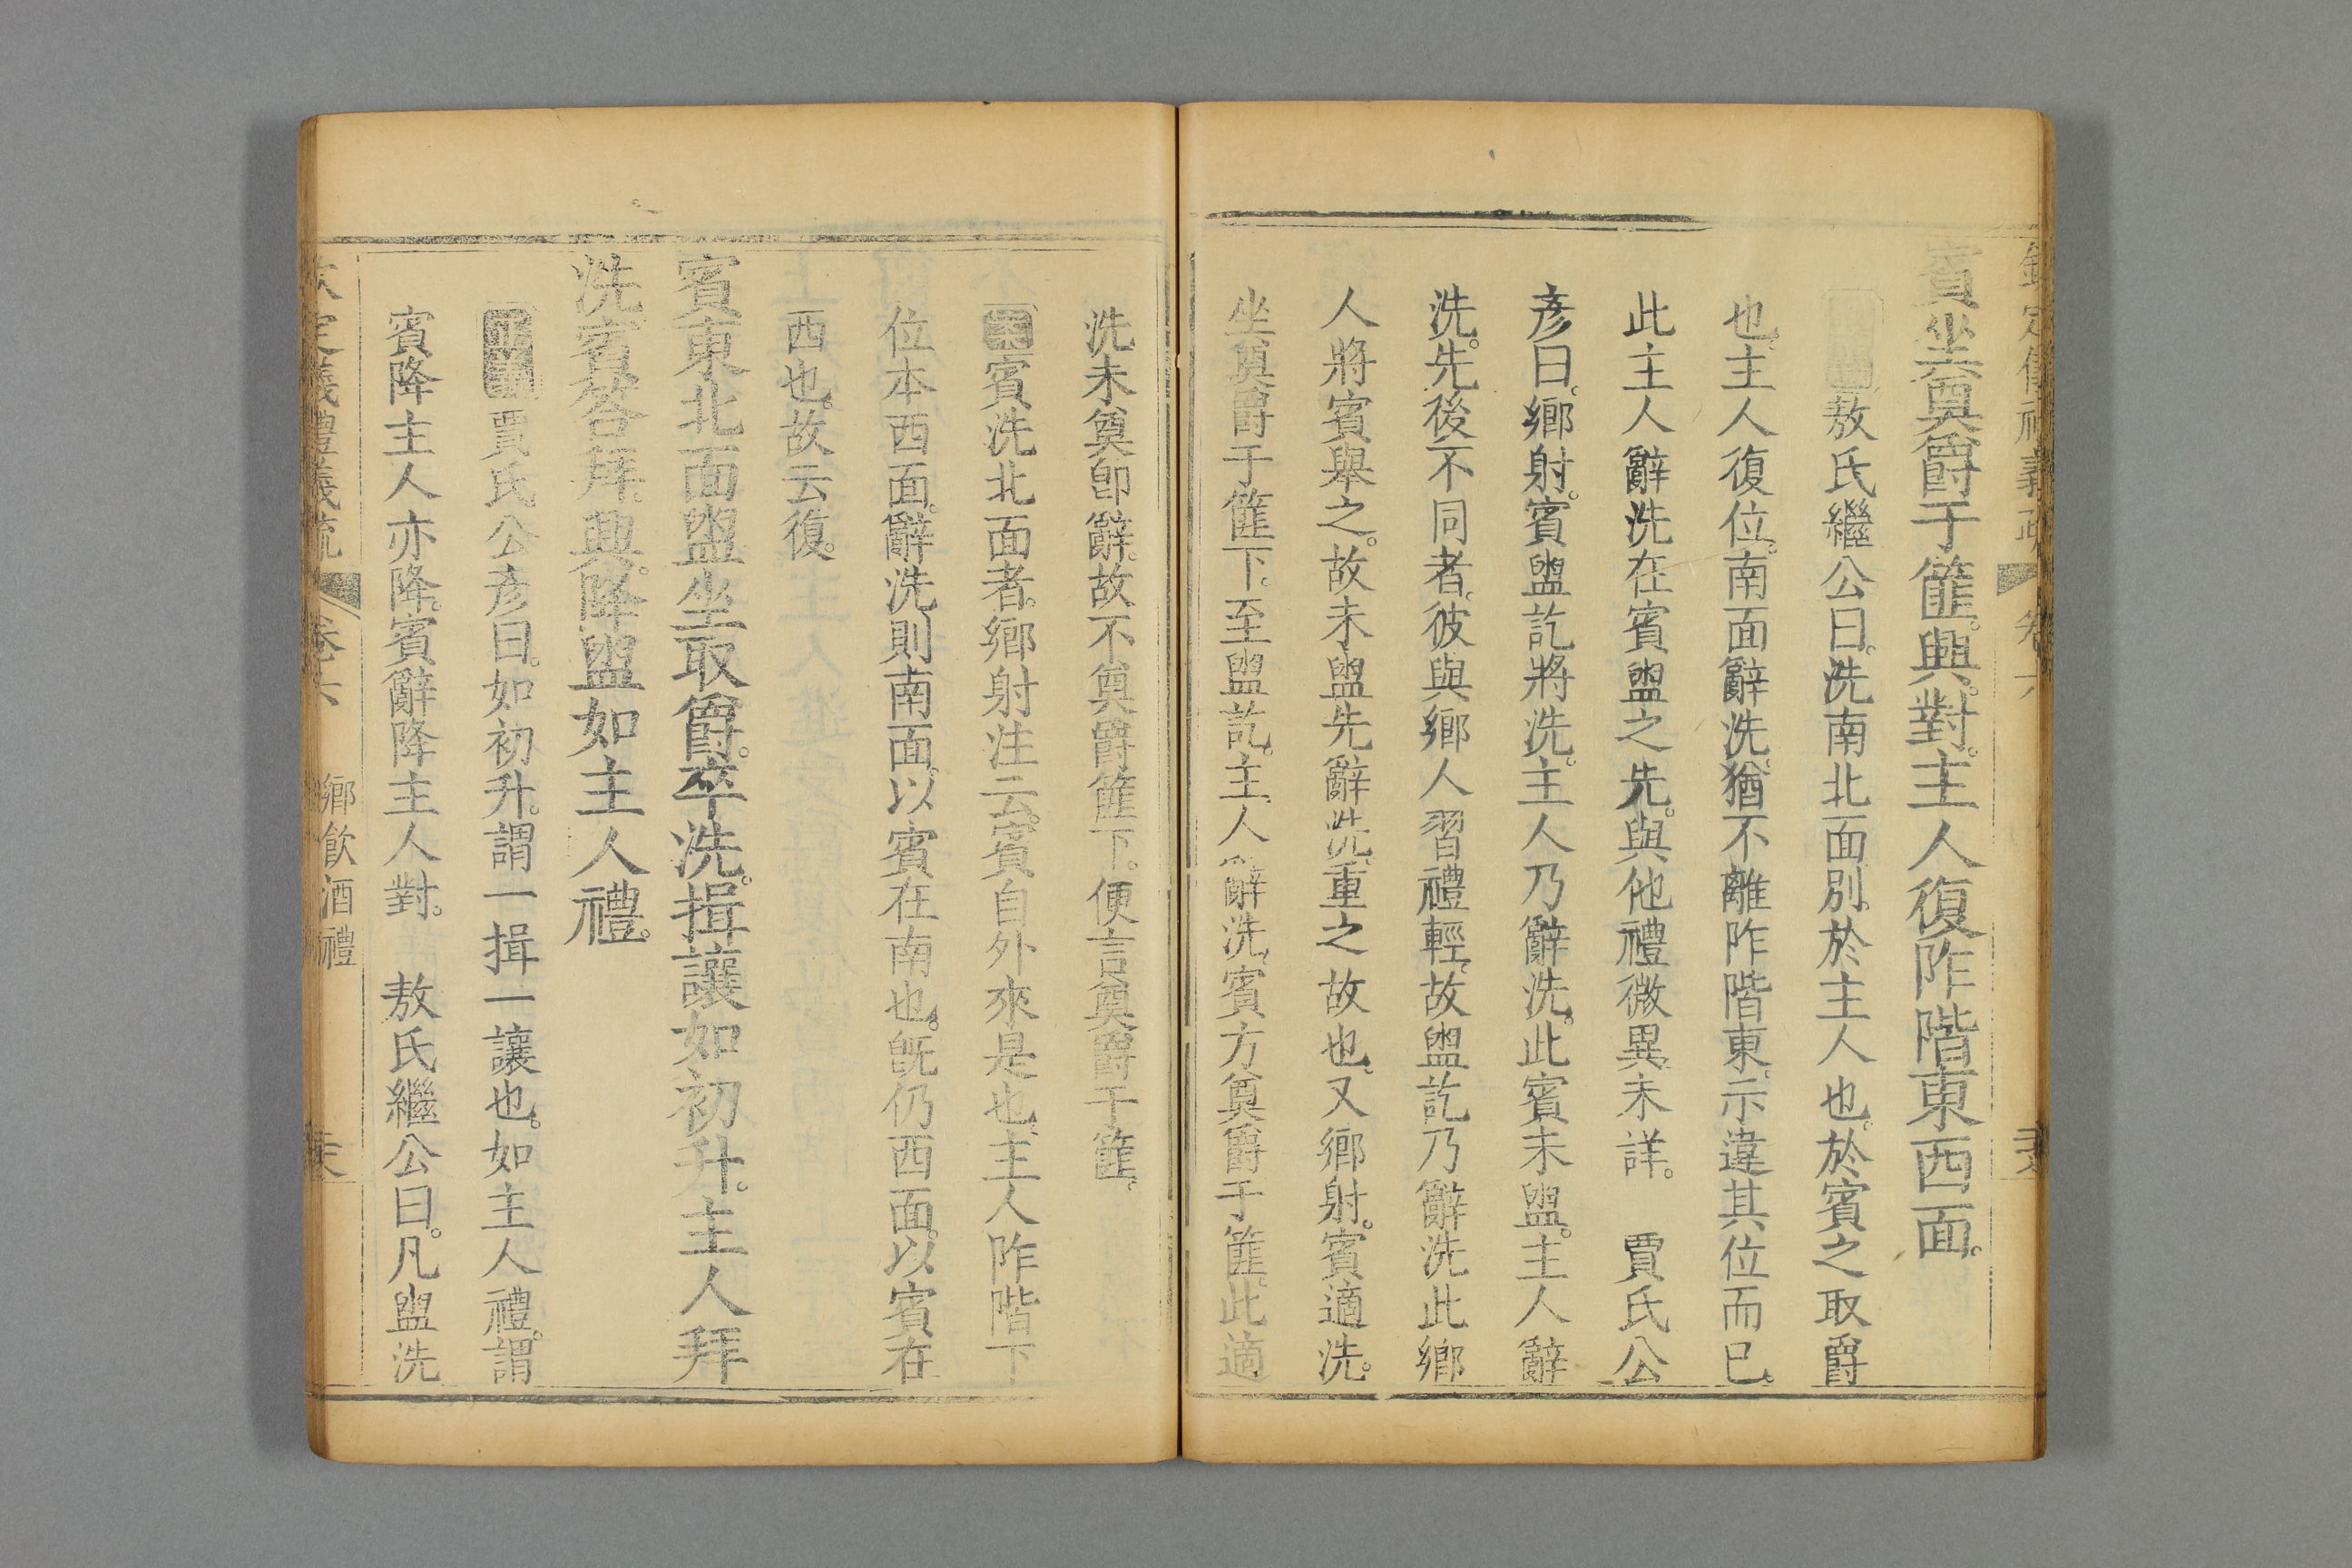 欽定儀禮義疏 卷六
賓坐奠爵于篚。興。對。主人復阼階東西面。
敖氏繼公曰。洗南北面別於主人也。於賓之取爵
也。主人復位。南面辭洗。猶不離阼階東。示違其位而已。
此主人辭洗在賓盥之先。與他禮微異。未詳。 賈氏公
彥曰。鄉射。賓盥訖將洗。主人乃辭洗。此賓未盥。主人辭
洗。先後不同者。彼與鄉人習禮輕。故盥訖乃辭洗此鄉
人將賓舉之。故未盥先辭洗。重之故也。又鄉射。賓適洗。
坐奠爵于篚下。至盥訖。主人辭洗。賓方奠爵于篚。此適
洗未奠卽辭。故不奠爵篚下。便言奠爵于篚。
賓洗北面者。鄉射注云。賓自外來是也。主人阼階下
位本西面。辭洗則南面。以賓在南也。旣仍西面。以賓在
西也。故云復。
賓東北面盥坐取爵。卒洗。揖讓如初升。主人拜
洗。賓答拜。興。降盥如主人禮。
正義 賈氏公彥曰。如初升。謂一揖一讓也。如主人禮。謂
賓降主人亦降。賓辭降主人對。 敖氏繼公曰。凡盥洗
欽定儀禮義疏 卷六 鄉飲酒禮